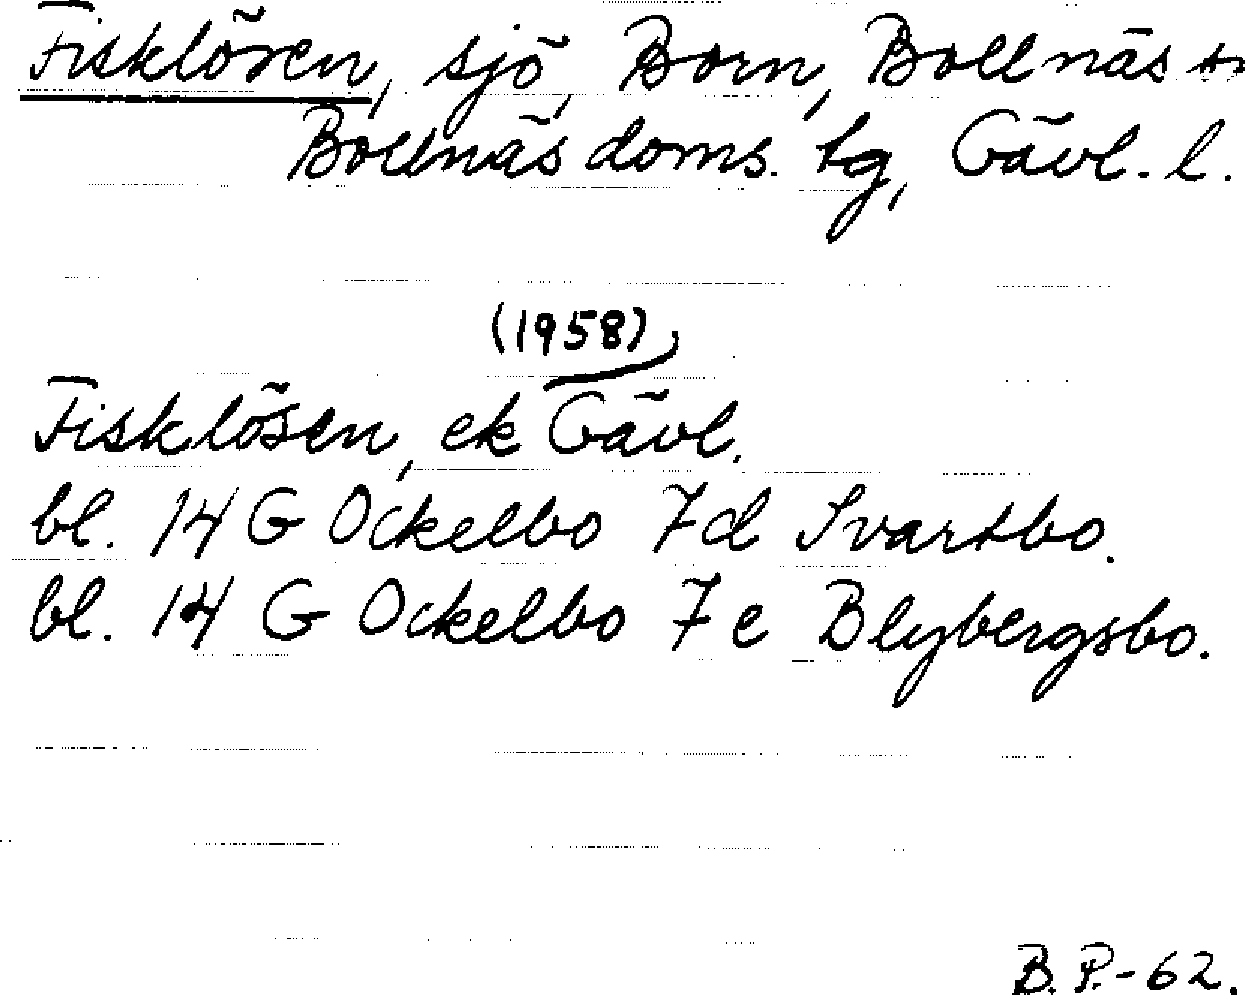 Fisklösen, sjö, Born, Bollnäs sn
Bollnäs doms. tg, Gävl. l.
(1958)
Fisklösen, ek Gävl.
bl. 14 G Ockelbo 7d Svartbo.
bl. 14 G Ockelbo 7e Blybergsbo.
B.P.-62.